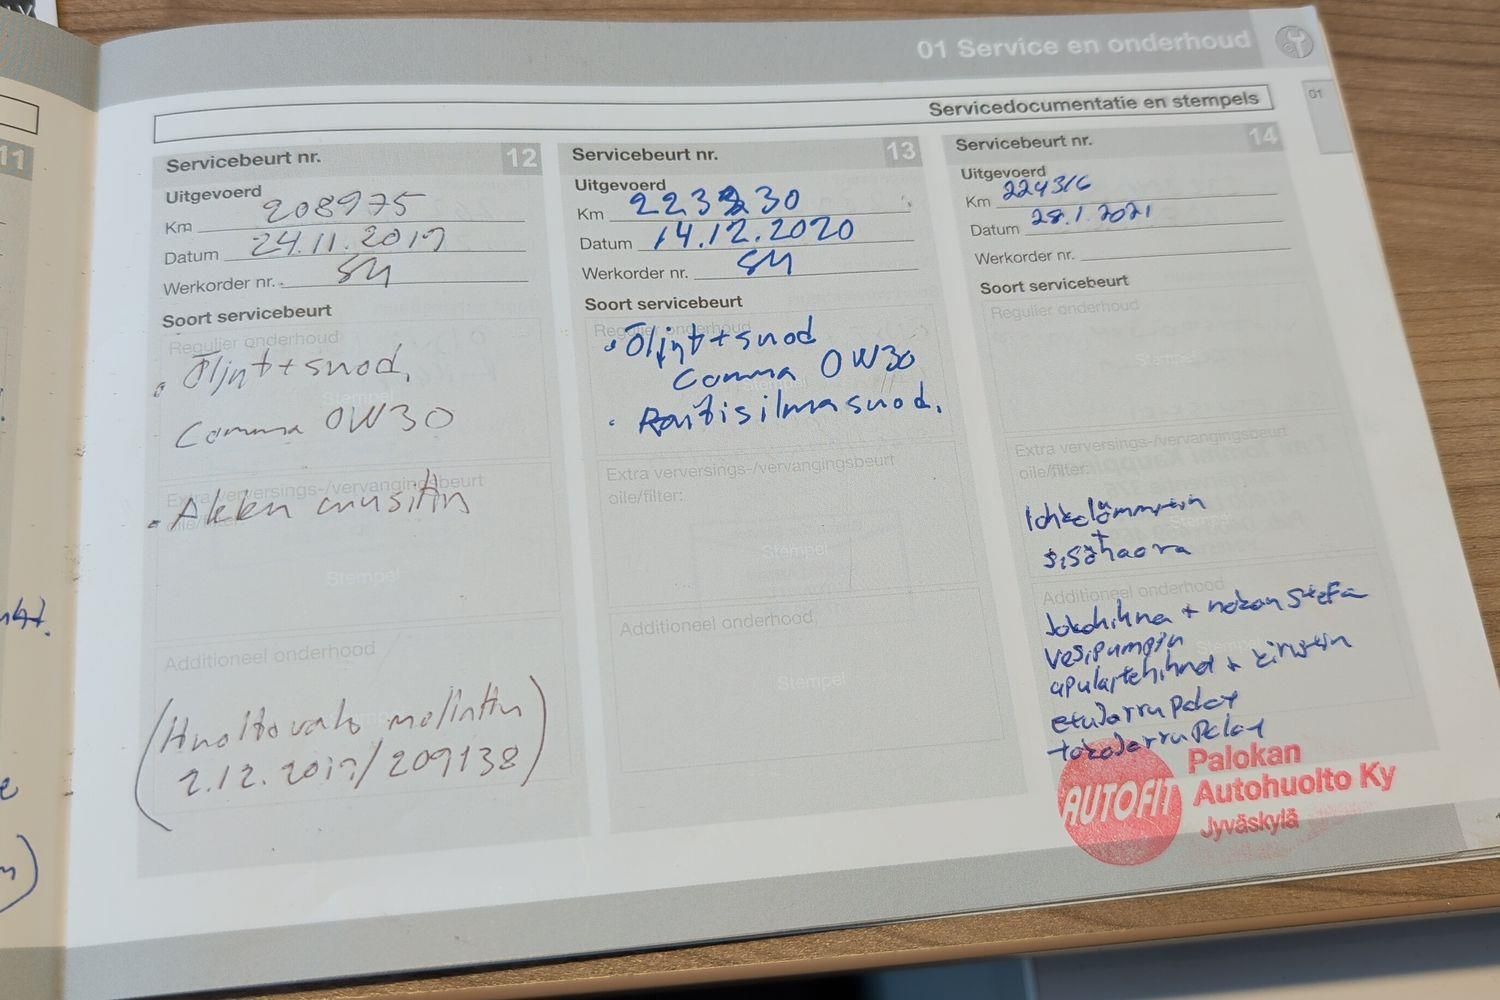 01 Service en onderhoud
01
Servicedocumentatie en stempels
11
Servicebeurt nr. 12
Uitgevoerd
Km 208975
Datum 24.11.2019
Werkorder nr. SM
Soort servicebeurt
Regulier onderhoud
• Öljyt + suod.
Stempel
Comma 0W30
Extra verversings-/vervangingsbeurt
oile/filter:
• Akku
Stempel
Additioneel onderhoud
(Huoltovalo
2.12.2019/209138)
Servicebeurt nr. 13
Uitgevoerd
Km 223230
Datum 14.12.2020
Werkorder nr. SM
Soort servicebeurt
Regulier onderhoud
• Öljyt + suod
Comma 0W30
Stempel
• Raitisilmasuod.
Extra verversings-/vervangingsbeurt
oile/filter:
Stempel
Additioneel onderhoud
Stempel
Servicebeurt nr. 14
Uitgevoerd
Km 224316
Datum 28.1.2021
Werkorder nr.
Soort servicebeurt
Regulier onderhoud
Stempel
Extra verversings-/vervangingsbeurt
oile/filter:
lohkolämmitin
Stempel
+
sisähaara
Additioneel onderhoud
Jakohihna + nokan Stefa
vesipumppu
Stempel
apulaitehihna + kiristin
etujarrupalat
takajarrupalat
AUTOFIT
Palokan
Autohuolto Ky
Jyväskylä